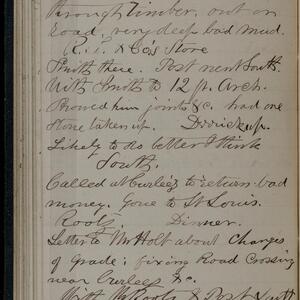 through Timber, out on
road, very deep bad mud.
R. T. & Co's Store
Smith there. Post next South.
With Smith to 12 ft. Arch.
Showed him joints &c. had one
Stone taken up. Derrick up.
Likely to do better I think
South.
Called at Curlee's to return bad
money. Gone to St Louis.
Roots Dinner.
Letter to Mr Holt about Changes
of Grade; fixing Road Crossing
near Curlees &c.
With Mr Roots & Post South